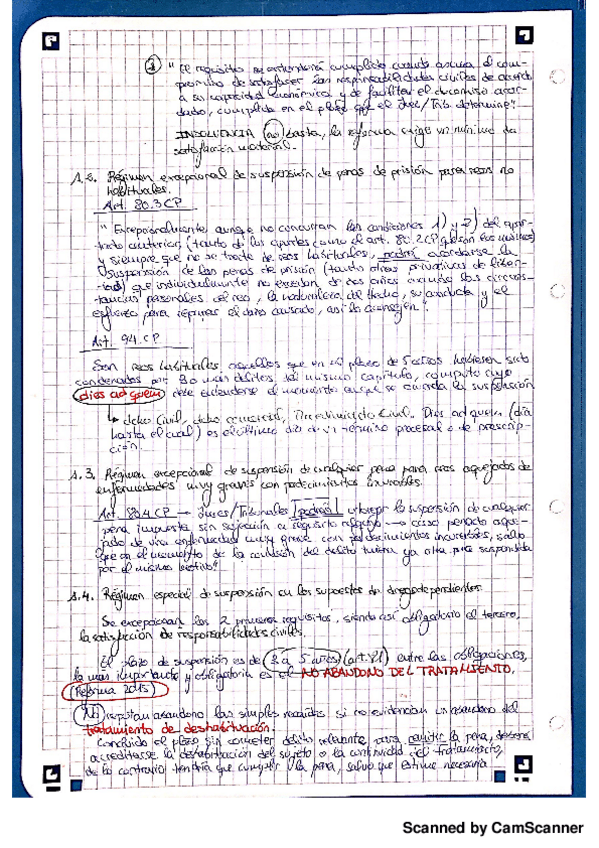 ② "El requisito se entenderá cumplido cuando asuma el com-
promiso de satisfacer las responsabilidades civiles de acuerdo
a su capacidad económica y de facilitar el decomiso acor-
dado, cumplido en el plazo que el Juez/Trib determine".
INSOLVENCIA no basta, la reforma exige un mínimo de
satisfacción material.
A.2. Régimen excepcional de suspensión de penas de prisión para reos no
habituales.
Art. 80.3 CP
"Excepcionalmente aunque no concurran las condiciones 1) y 2) del apar-
tado anterior, (tanto di los apartes como el art. 80.2 CP que son los mismos)
y siempre que no se trate de reos habituales, podrá acordarse la
suspensión de las penas de prisión (tanto otras privativas de liber-
tad) que individualmente no excedan de dos años cuando las circuns-
tancias personales del reo, la naturaleza del hecho, su conducta y el
esfuerzo para reparar el daño causado, así lo aconsejen".
Art. 94 CP
Son reos habituales aquellos que en un plazo de 5 años hubiesen sido
condenados por 3 o más delitos del mismo capítulo, cómputo cuyo
dies ad quem debe entenderse el momento en que se acuerda la suspensión
↳ dcho Civil, dcho comercial, Procedimiento Civil. Dies ad quem (día
hasta el cual) es el último día de un término procesal o de prescrip-
ción.
A.3. Régimen excepcional de suspensión de cualquier pena para reos aquejados de
enfermedades muy graves con padecimientos incurables.
Art. 80.4 CP → Jueces/Tribunales podrán otorgar la suspensión de cualquier
pena impuesta sin sujeción a requisito alguno → caso penado aque-
jado de una enfermedad muy grave con padecimientos incurables, salvo
que en el momento de la comisión del delito tuviera ya otra pena suspendida
por el mismo motivo.
A.4. Régimen especial de suspensión en los supuestos de drogodependientes.
Se excepcionan los 2 primeros requisitos, siendo así obligatorio el tercero,
la satisfacción de responsabilidades civiles.
El plazo de suspensión es de 3 a 5 años (art. 81) entre las obligaciones,
la más importante y obligatoria es el NO ABANDONO DEL TRATAMIENTO.
(Reforma 2015)
No reputan abandono las simples recaídas si no evidencian un abandono del
tratamiento de deshabituación.
Concluido el plazo sin cometer delito relevante para remitir la pena, deberá
acreditarse la deshabituación del sujeto o la continuidad del tratamiento,
de lo contrario tendría que cumplir la pena, salvo que estime necesaria
Scanned by CamScanner